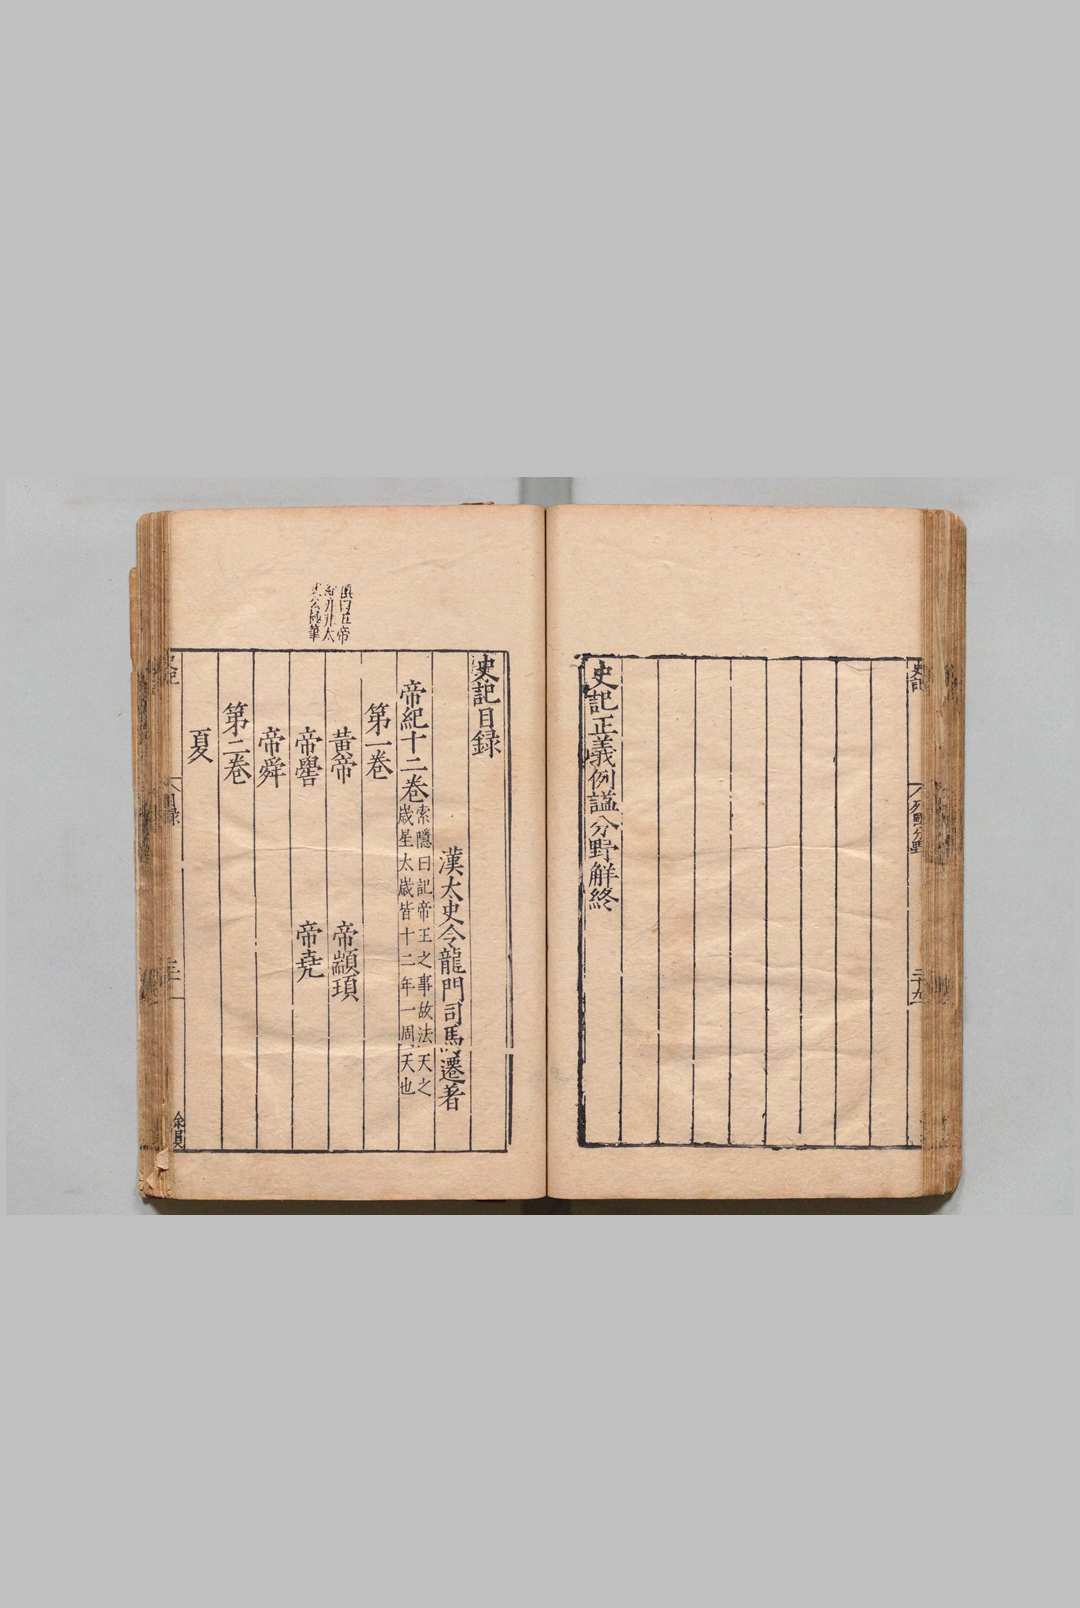 史記正義例謚分野解終
史記
列國分野
三十九
史記目録
漢太史令龍門司馬遷著
帝紀十二卷
索隱曰記帝王之事故法天之
歳星太歳皆十二年一周天也
第一卷
黄帝
帝顓頊
帝嚳
帝堯
帝舜
第二卷
夏
史記
目録